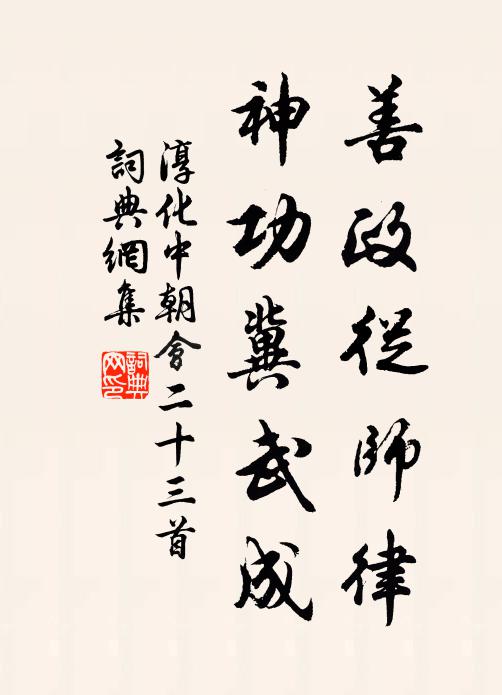 善政從師律
神功冀武成
淳化中朝會二十三首
詞典網集
詞典網印